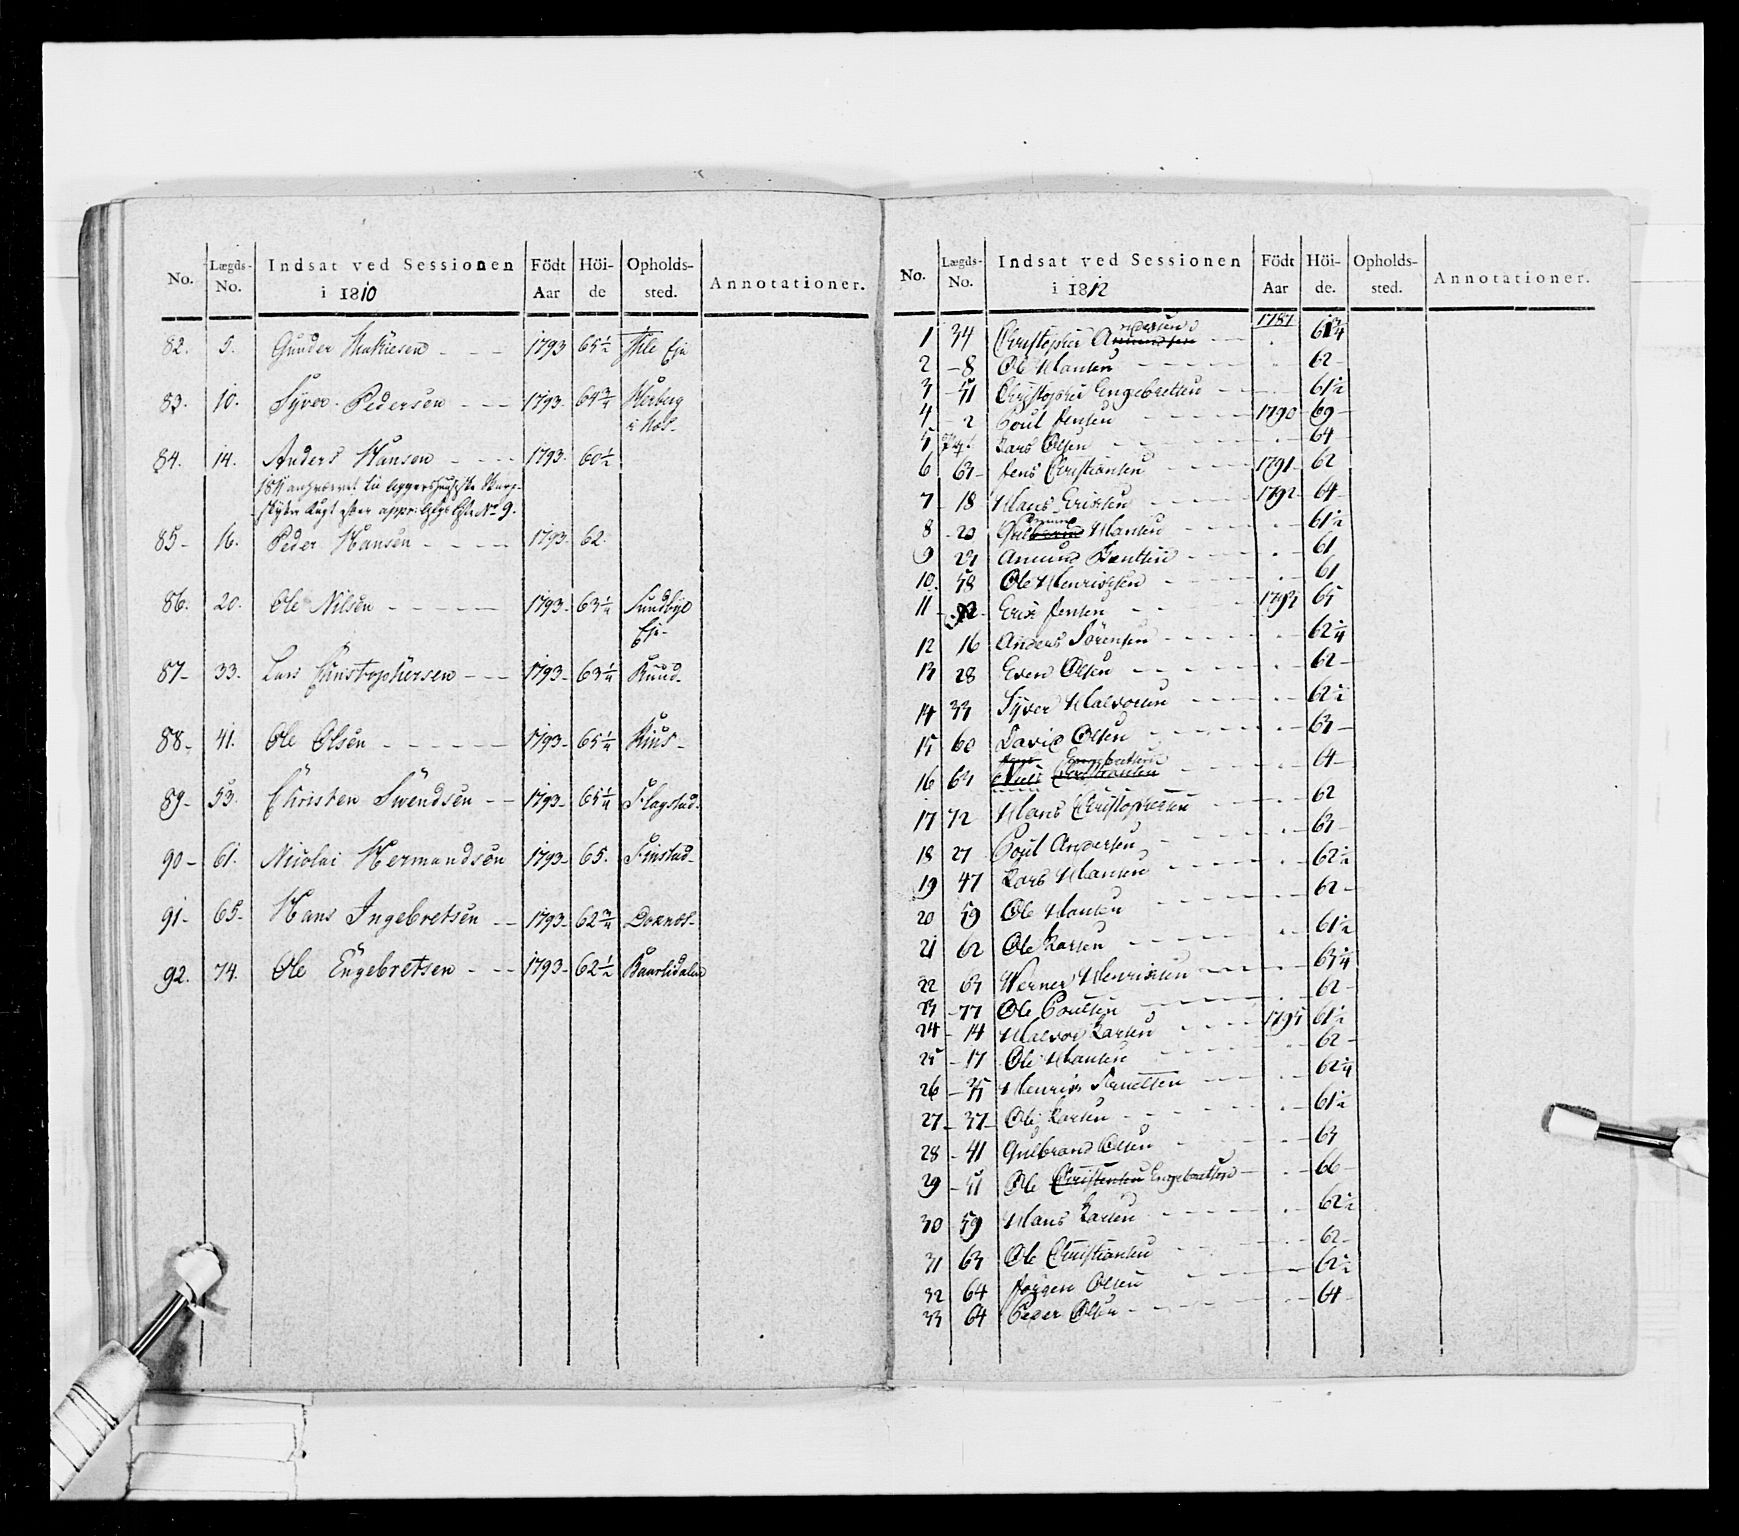 No. Lægds-No. Indsat ved Sessionen i 1810 Födt Aar Höi-de Opholds-sted. Annotationer.
82. 5. Gunder 1793 65½ Ihle Eje
83. 10. Syver Pedersen 1793 64¾
84. 14. Anders Hansen 1793 60½
85 16. Peder Hansen 1793 62.
86. 20. Ole Nilsen 1793 63¼ Sundbye Eje
87 33. Lars Christophersen 1793 63¼ Ruud
88 41. Ole Olsen 1793 65¼ Riis
89 53. Christen Swendsen 1793 65¼ Flagstad
90 61. Nicolai Hermandsen 1793 65. Finstad
91 65 Hans Ingebretsen 1793 62¾
92. 74. Ole Engebretsen 1793 62½
No. Lægds-No. Indsat ved Sessionen i 1812 Födt Aar Höi-de. Opholds-sted. Annotationer.
1 34 Christopher Andersen 1787
2 8 Ole Hansen 62
3 51 Christopher Engebretsen 61½
4 2 Poul Jensen 1790 69
5 Lars Olsen 64
6 63 Jens Christiansen 1791 62
7 18 Hans Erichsen 1792 64
8 20 Hansen 61½
9 Amund 61
10. 58 Ole Henrichsen 61
11 Erik Jensen 1793 65
12 16 Anders Sörensen 62¼
13 28 Even Olsen 62
14 33 Syver Halvorsen 62½
15 60 David Olsen 63
16 63 Engebretsen 64
17 72 Hans Christophersen 62
18 27 Poul Andersen 63
19 47 Lars Hansen 62½
20 59 Ole Hansen 62
21 62 Ole Larsen 61½
22 63 Werner Henriksen 63¼
23 77 Ole Poulsen 62
24 14 Halvor Larsen 1795 61½
25 17 Ole Hansen 62
26 35 Henrik 62¼
27 37 Ole Larsen 61½
28 41 Gulbrand Olsen 63
29 51 Ole Christensen Engebretsen 66
30 59 Hans Larsen 62½
31 63 Ole Christiansen 62
32 64 Jörgen Olsen 62½
33 64 Peder Olsen 64